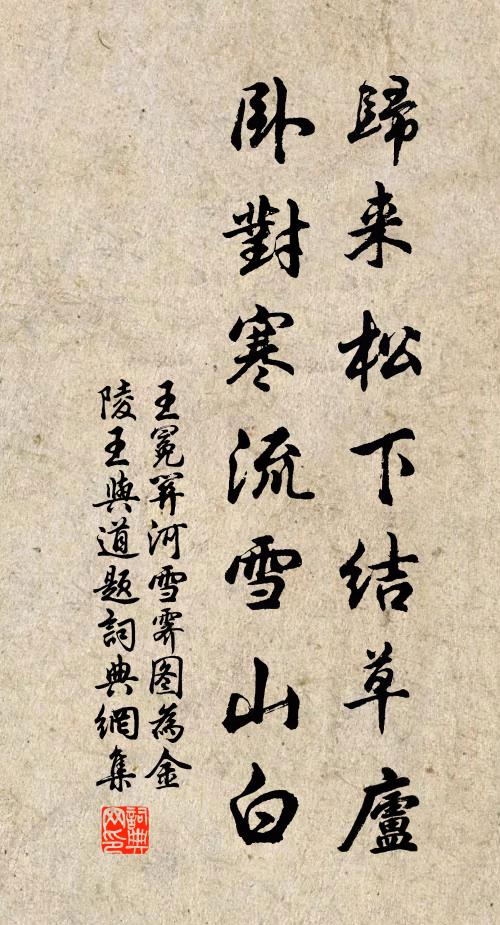 歸来松下结草廬
卧對寒流雪山白
王冕關河雪霽图為金
陵王與道題詞典網集
詞典网印